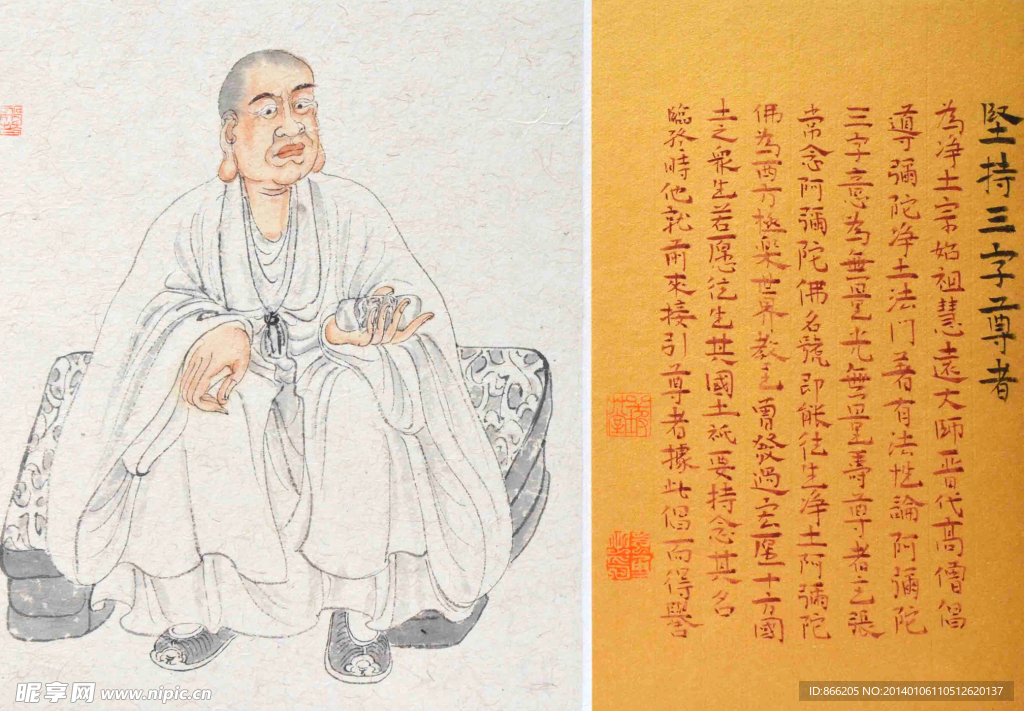 堅持三字尊者
為净土宗始祖慧遠大師晋代高僧倡
導彌陀净土法门著有法性論阿彌陀
三字意為無量光無量壽尊者主張
常念阿彌陀佛名號即能往生净土阿彌陀
佛為西方極樂世界教主曾發過宏愿十方國
土之衆生若愿往生其國土祇要持念其名
臨终時他就前來接引尊者據此倡而得譽
昵享网 www.nipic.cn
ID:866205 NO:20140106110512620137